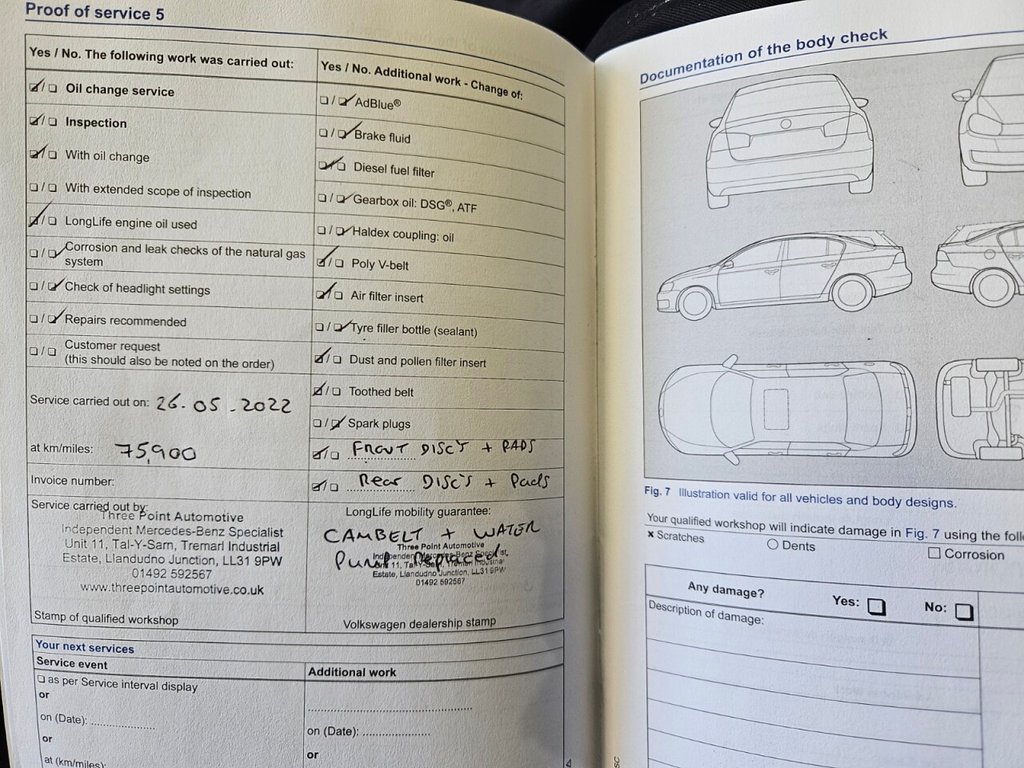 Proof of service 5
Yes / No. The following work was carried out:
☑/☐ Oil change service
☑/☐ Inspection
☑/☐ With oil change
☐/☐ With extended scope of inspection
☑/☐ LongLife engine oil used
☐/☑ Corrosion and leak checks of the natural gas
system
☐/☑ Check of headlight settings
☐/☑ Repairs recommended
☐/☐ Customer request
(this should also be noted on the order)
Service carried out on: 26.05.2022
at km/miles: 75,900
Invoice number:
Service carried out by:
Three Point Automotive
Independent Mercedes-Benz Specialist
Unit 11, Tal-Y-Sarn, Tremarl Industrial
Estate, Llandudno Junction, LL31 9PW
01492 592567
www.threepointautomotive.co.uk
Stamp of qualified workshop
Yes / No. Additional work - Change of:
☐/☑ AdBlue®
☐/☑ Brake fluid
☑/☐ Diesel fuel filter
☐/☑ Gearbox oil: DSG®, ATF
☐/☑ Haldex coupling: oil
☑/☐ Poly V-belt
☑/☐ Air filter insert
☐/☑ Tyre filler bottle (sealant)
☑/☐ Dust and pollen filter insert
☑/☐ Toothed belt
☐/☑ Spark plugs
☑/☐ FRONT DISC'S + PADS
☑/☐ Rear DISC'S + Pads
LongLife mobility guarantee:
CAMBELT + WATER
Pump Replaced
Three Point Automotive
Independent Mercedes-Benz Specialist,
Estate, Llandudno Junction, LL31 9PW
01492 592567
Volkswagen dealership stamp
Your next services
Service event
☐ as per Service interval display
or
on (Date): ....................
or
at (km/miles):
Additional work
on (Date): ....................
or
Documentation of the body check
Fig. 7 Illustration valid for all vehicles and body designs.
Your qualified workshop will indicate damage in Fig. 7 using the
x Scratches
○ Dents
☐ Corrosion
Any damage?
Yes: ☐
No: ☐
Description of damage: